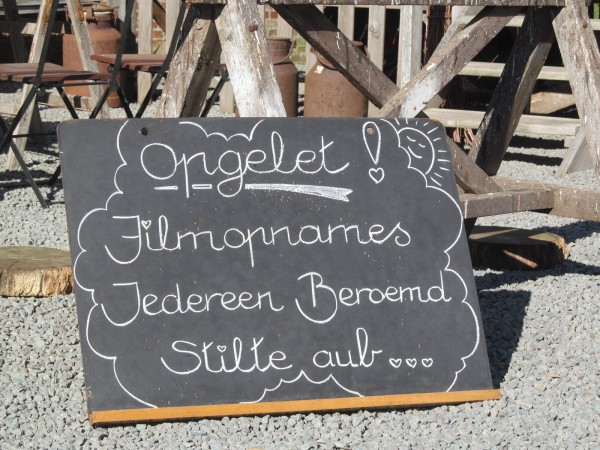 Opgelet!
Filmopnames
Iedereen Beroemd
Stilte aub...